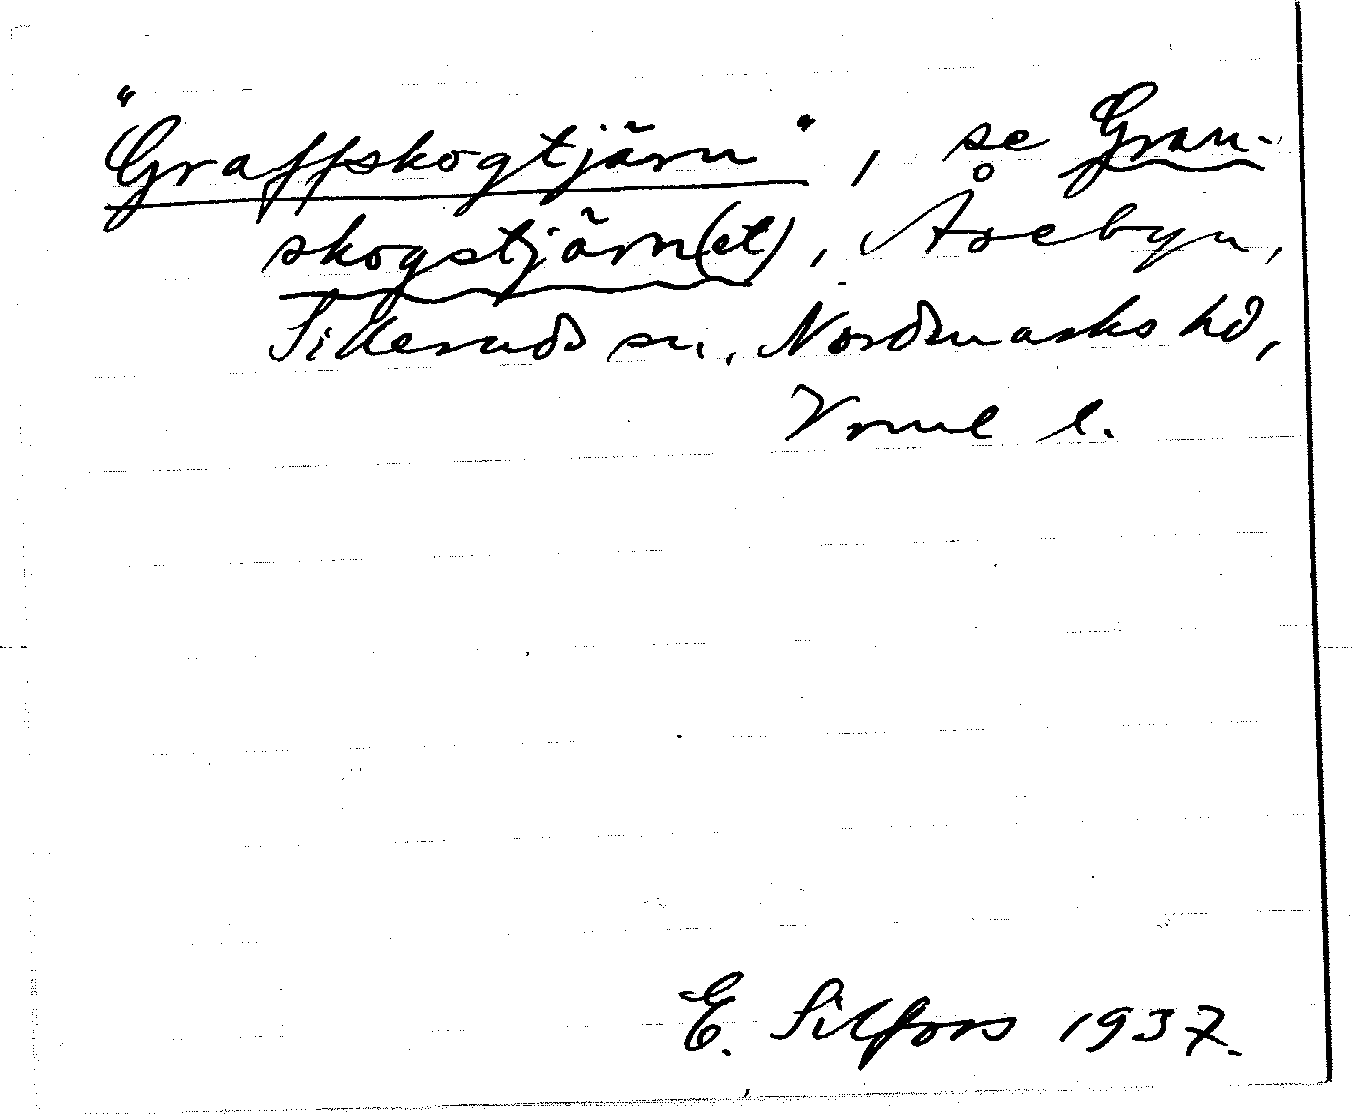 "Graffskogtjärn", se Gran-
skogstjärn(et), Årebyn,
Silleruds sn, Nordmarks hd,
Vrml l.
E. Silfors 1937.